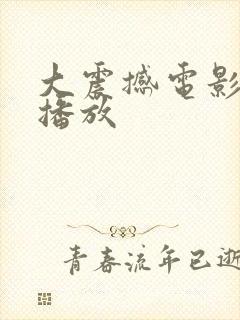 大震撼电影
播放
青春流年已逝